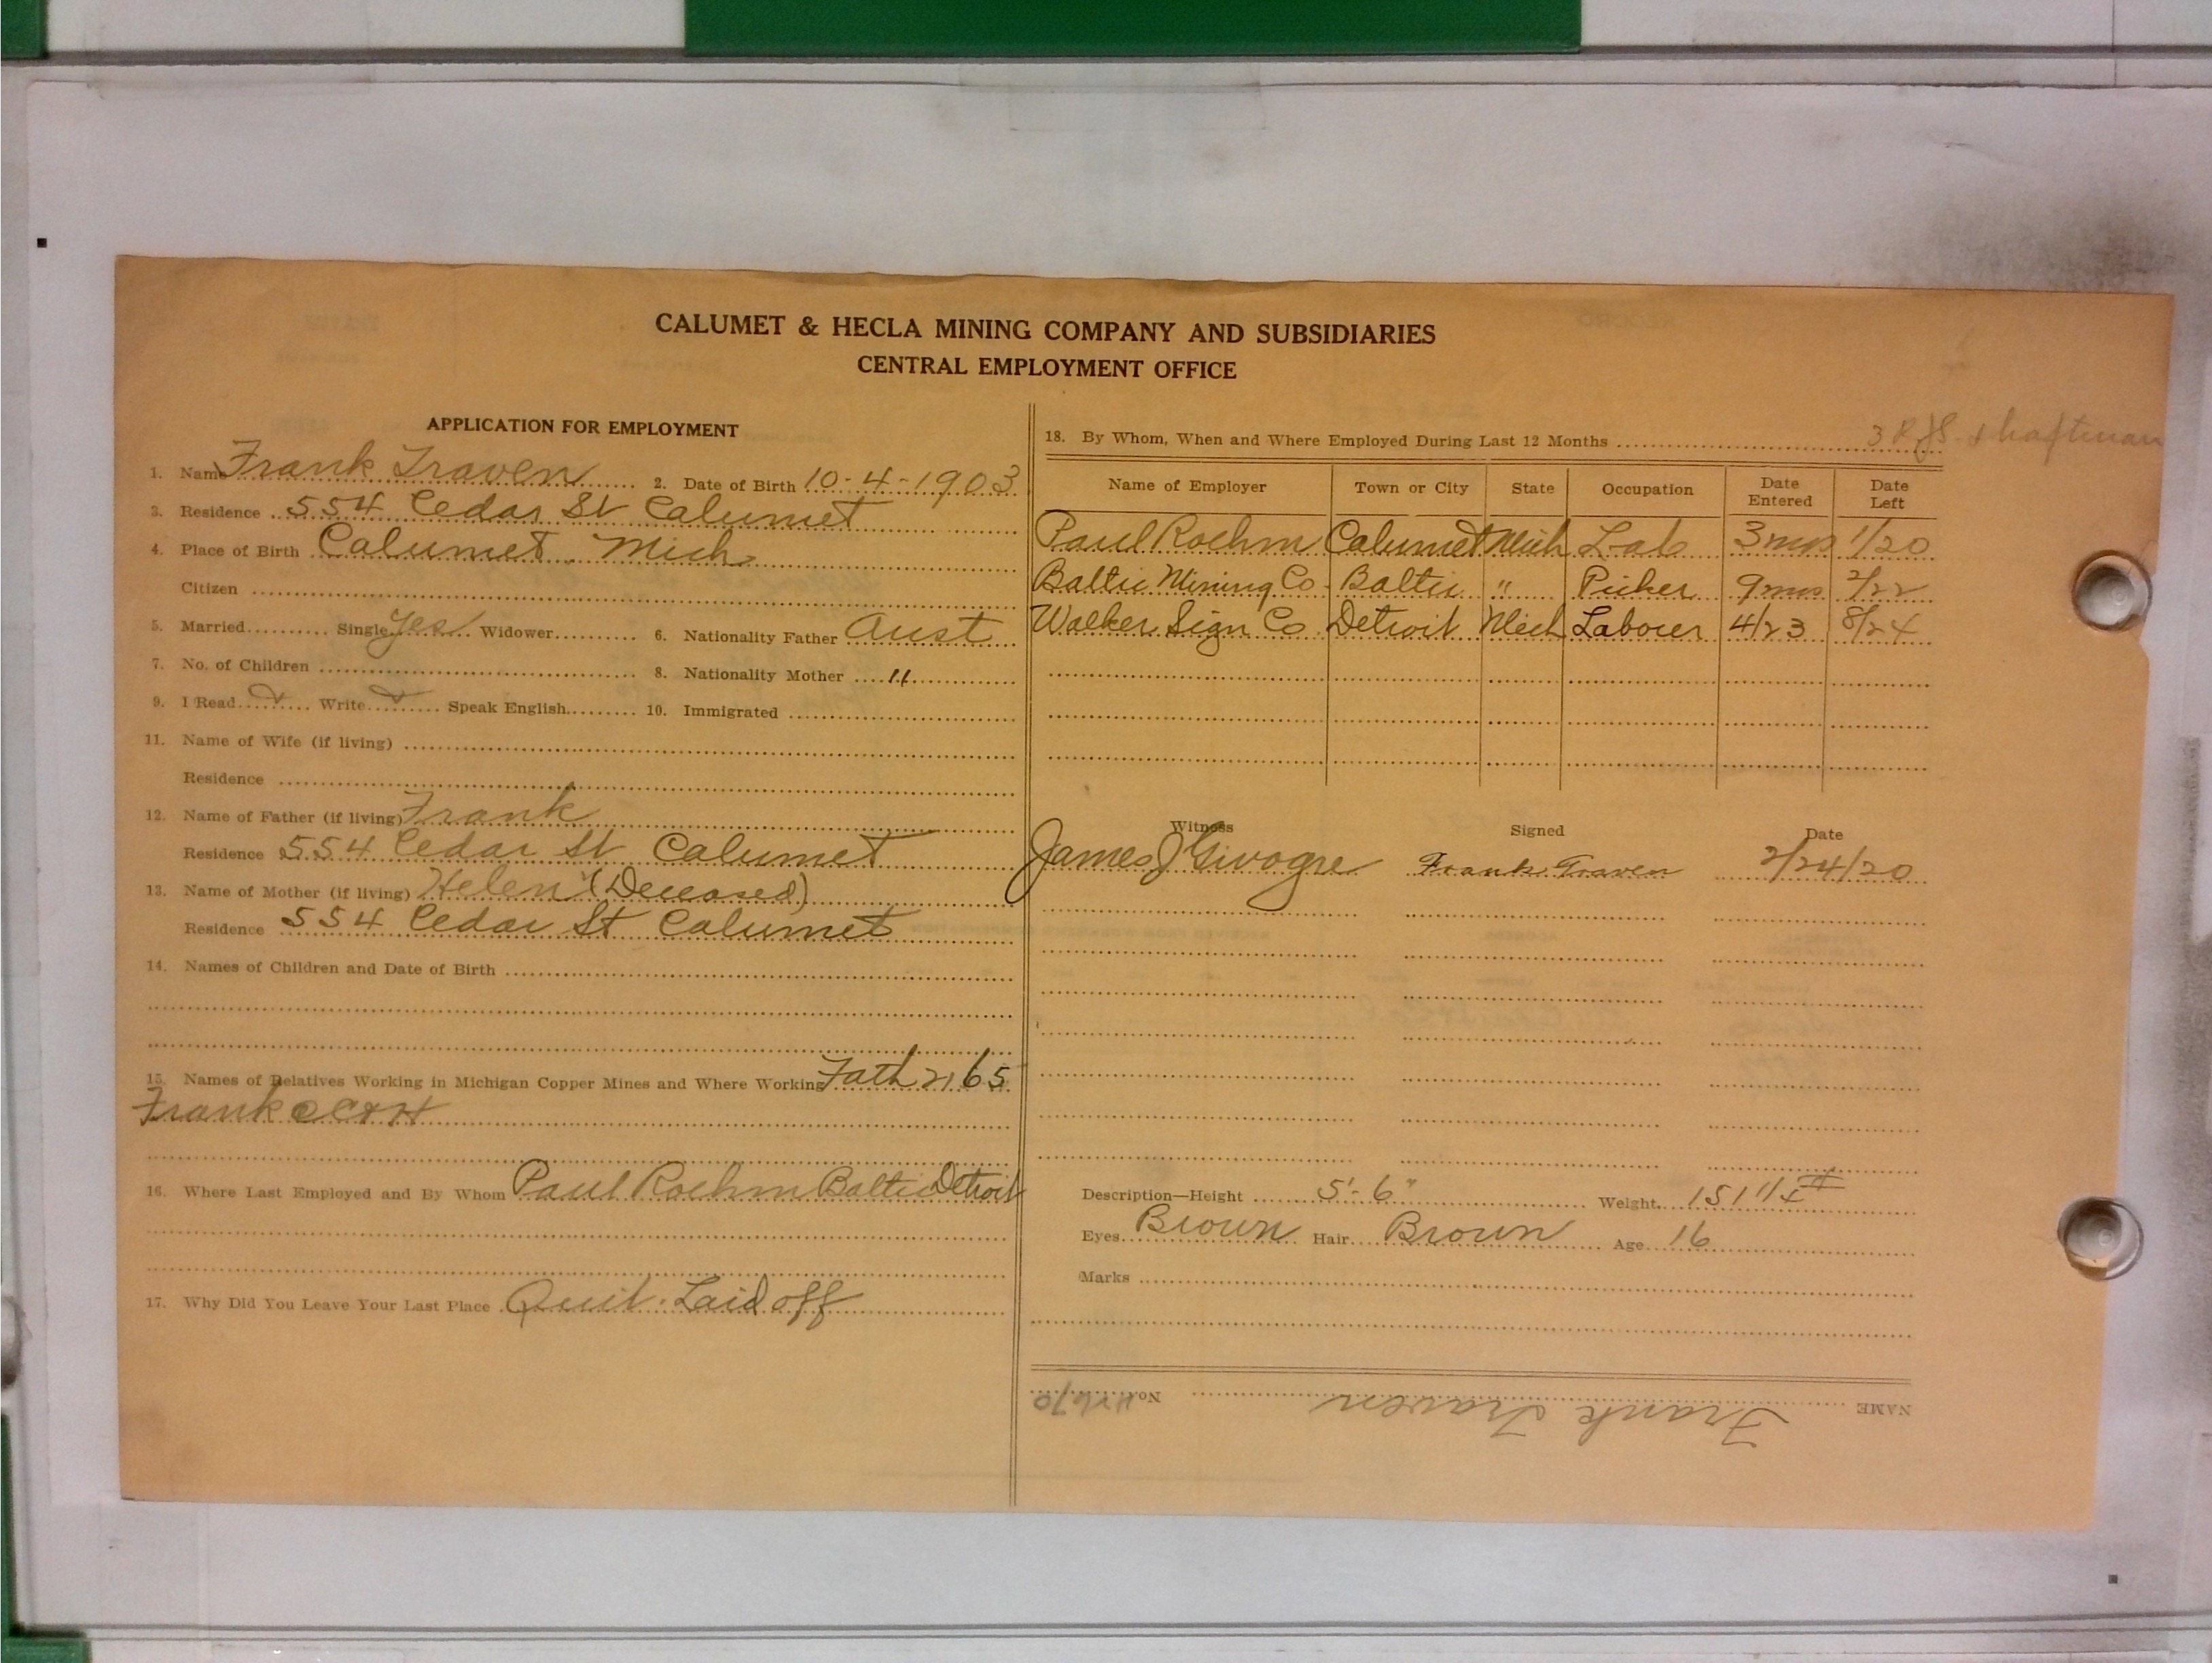 CALUMET & HECLA MINING COMPANY AND SUBSIDIARIES
CENTRAL EMPLOYMENT OFFICE
APPLICATION FOR EMPLOYMENT
1. Name Frank Traven 2. Date of Birth 10-4-1903
3. Residence 554 Cedar St Calumet
4. Place of Birth Calumet Mich
Citizen
5. Married Single Yes Widower 6. Nationality Father Aust
7. No. of Children 8. Nationality Mother "
9. I Read Write Speak English 10. Immigrated
11. Name of Wife (if living)
Residence
12. Name of Father (if living) Frank
Residence 554 Cedar St Calumet
13. Name of Mother (if living) Helen (Deceased)
Residence 554 Cedar St Calumet
14. Names of Children and Date of Birth
15. Names of Relatives Working in Michigan Copper Mines and Where Working Fath 2165
Frank C&H
16. Where Last Employed and By Whom Paul Roehm Baltic Detroit
17. Why Did You Leave Your Last Place Quit. Laid off
18. By Whom, When and Where Employed During Last 12 Months shaftman
Name of Employer Town or City State Occupation Date Entered Date Left
Paul Roehm Calumet Mich Lab 3 mos 1/20
Baltic Mining Co Baltic " Picker 9 mos 2/22
Walker Sign Co Detroit Mich Laborer 4/23 8/24
Witness Signed Date
James J Givogre Frank Traven 2/24/20
Description—Height 5'-6" Weight 151 1/4 #
Eyes Brown Hair Brown Age 16
Marks
NAME Frank Traven No.